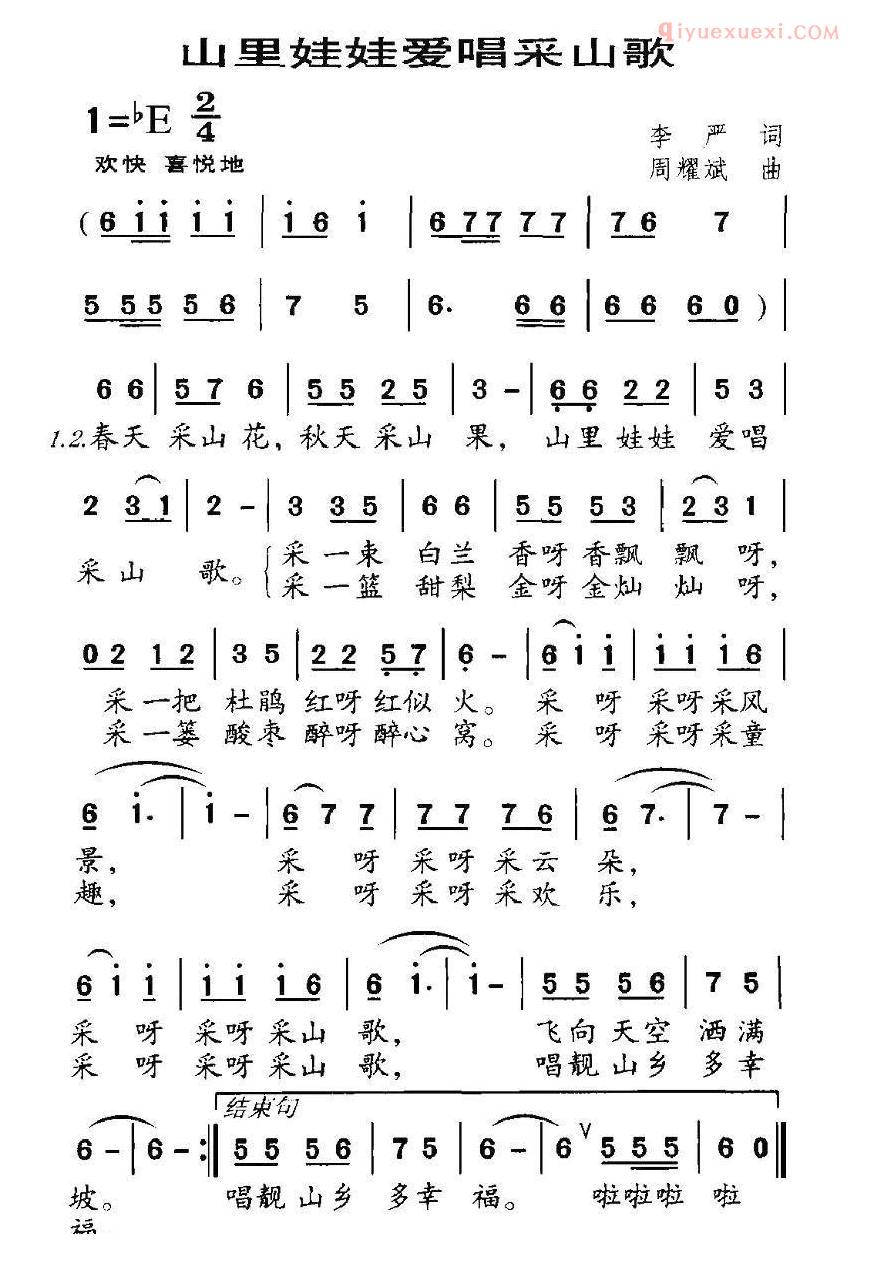 qiyuexuexi.com
山里娃娃爱唱采山歌
1=♭E 2/4
李严 词
欢快 喜悦地
周耀斌 曲
( 6 i i i i | i 6 i | 6 7 7 7 7 | 7 6 7 |
5 5 5 5 6 | 7 5 | 6. 6 6 | 6 6 6 0 ) |
6 6 | 5 7 6 | 5 5 2 5 | 3 - | 6 6 2 2 | 5 3
1.2.春天 采山花, 秋天 采山 果, 山里 娃娃 爱唱
2 3 1 | 2 - | 3 3 5 | 6 6 | 5 5 5 3 | 2 3 1 |
采山 歌。 采一束 白兰 香呀香飘 飘呀,
采一篮 甜梨 金呀金灿 灿呀,
0 2 1 2 | 3 5 | 2 2 5 7 | 6 - | 6 i i | i i i 6
采一把 杜鹃 红呀红似 火。 采呀 采呀采风
采一篓 酸枣 醉呀醉心 窝。 采呀 采呀采童
6 i. | i - | 6 7 7 | 7 7 7 6 | 6 7. | 7 - |
景, 采呀 采呀采云 朵,
趣, 采呀 采呀采欢 乐,
6 i i | i i i 6 | 6 i. | i - | 5 5 5 6 | 7 5
采呀 采呀 采山 歌, 飞向 天空 洒满
采呀 采呀 采山 歌, 唱靓 山乡 多幸
结束句
6 - | 6 - :| 5 5 5 6 | 7 5 | 6 - | 6 V 5 5 5 | 6 0 ‖
坡。 唱靓 山乡 多幸 福。 啦啦啦 啦
福